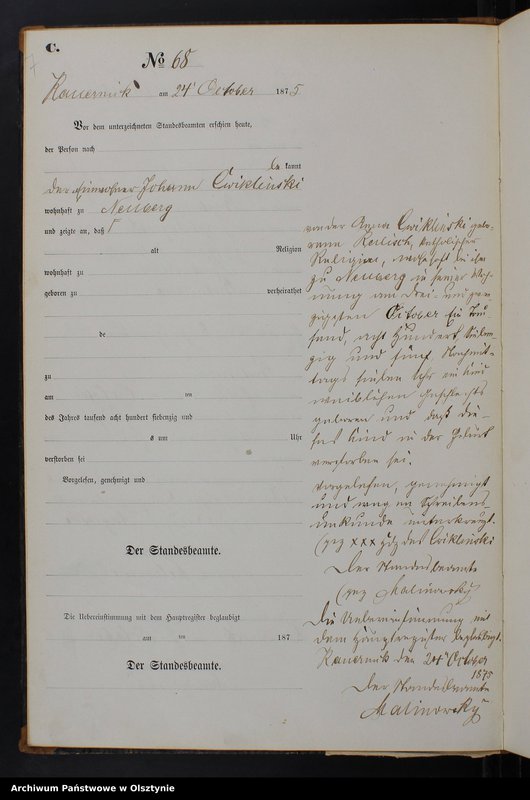 C.
7
No 68
Kauernik am 24t October 1875
Vor dem unterzeichneten Standesbeamten erschien heute,
der Person nach
be kannt
der Einwohner Johann Cwiklinski
wohnhaft zu Neuberg
und zeigte an, daß
alt Religion
wohnhaft zu
geboren zu verheirathet
de
zu
am ten
des Jahres tausend acht hundert siebenzig und
s um Uhr
verstorben sei
Vorgelesen, genehmigt und
Der Standesbeamte.
Die Uebereinstimmung mit dem Hauptregister beglaubigt
am ten 187
Der Standesbeamte.
von der Anna Cwiklinski gebo-
rene katholischer
Religion, wohnhaft bei ihm
zu Neuberg in seiner Woh-
nung am drei und zwan-
zigsten October Ein Tau-
send, acht Hundert, Sieben-
zig und fünf Nachmit-
tags sieben Uhr ein Kind
weiblichen Geschlechts
geboren und daß die-
ses Kind in der Geburt
verstorben sei.
Vorgelesen, genehmigt
und wegen Schreibens-
unkunde unterkreuzt.
(gez xxx Hdz des Cwiklinski
Der Standesbeamte
(gez Malinowsky
Die Uebereinstimmung mit
dem Hauptregister beglaubigt.
Kauernik den 24t October
1875
Der Standesbeamte
Malinowsky
Archiwum Państwowe w Olsztynie